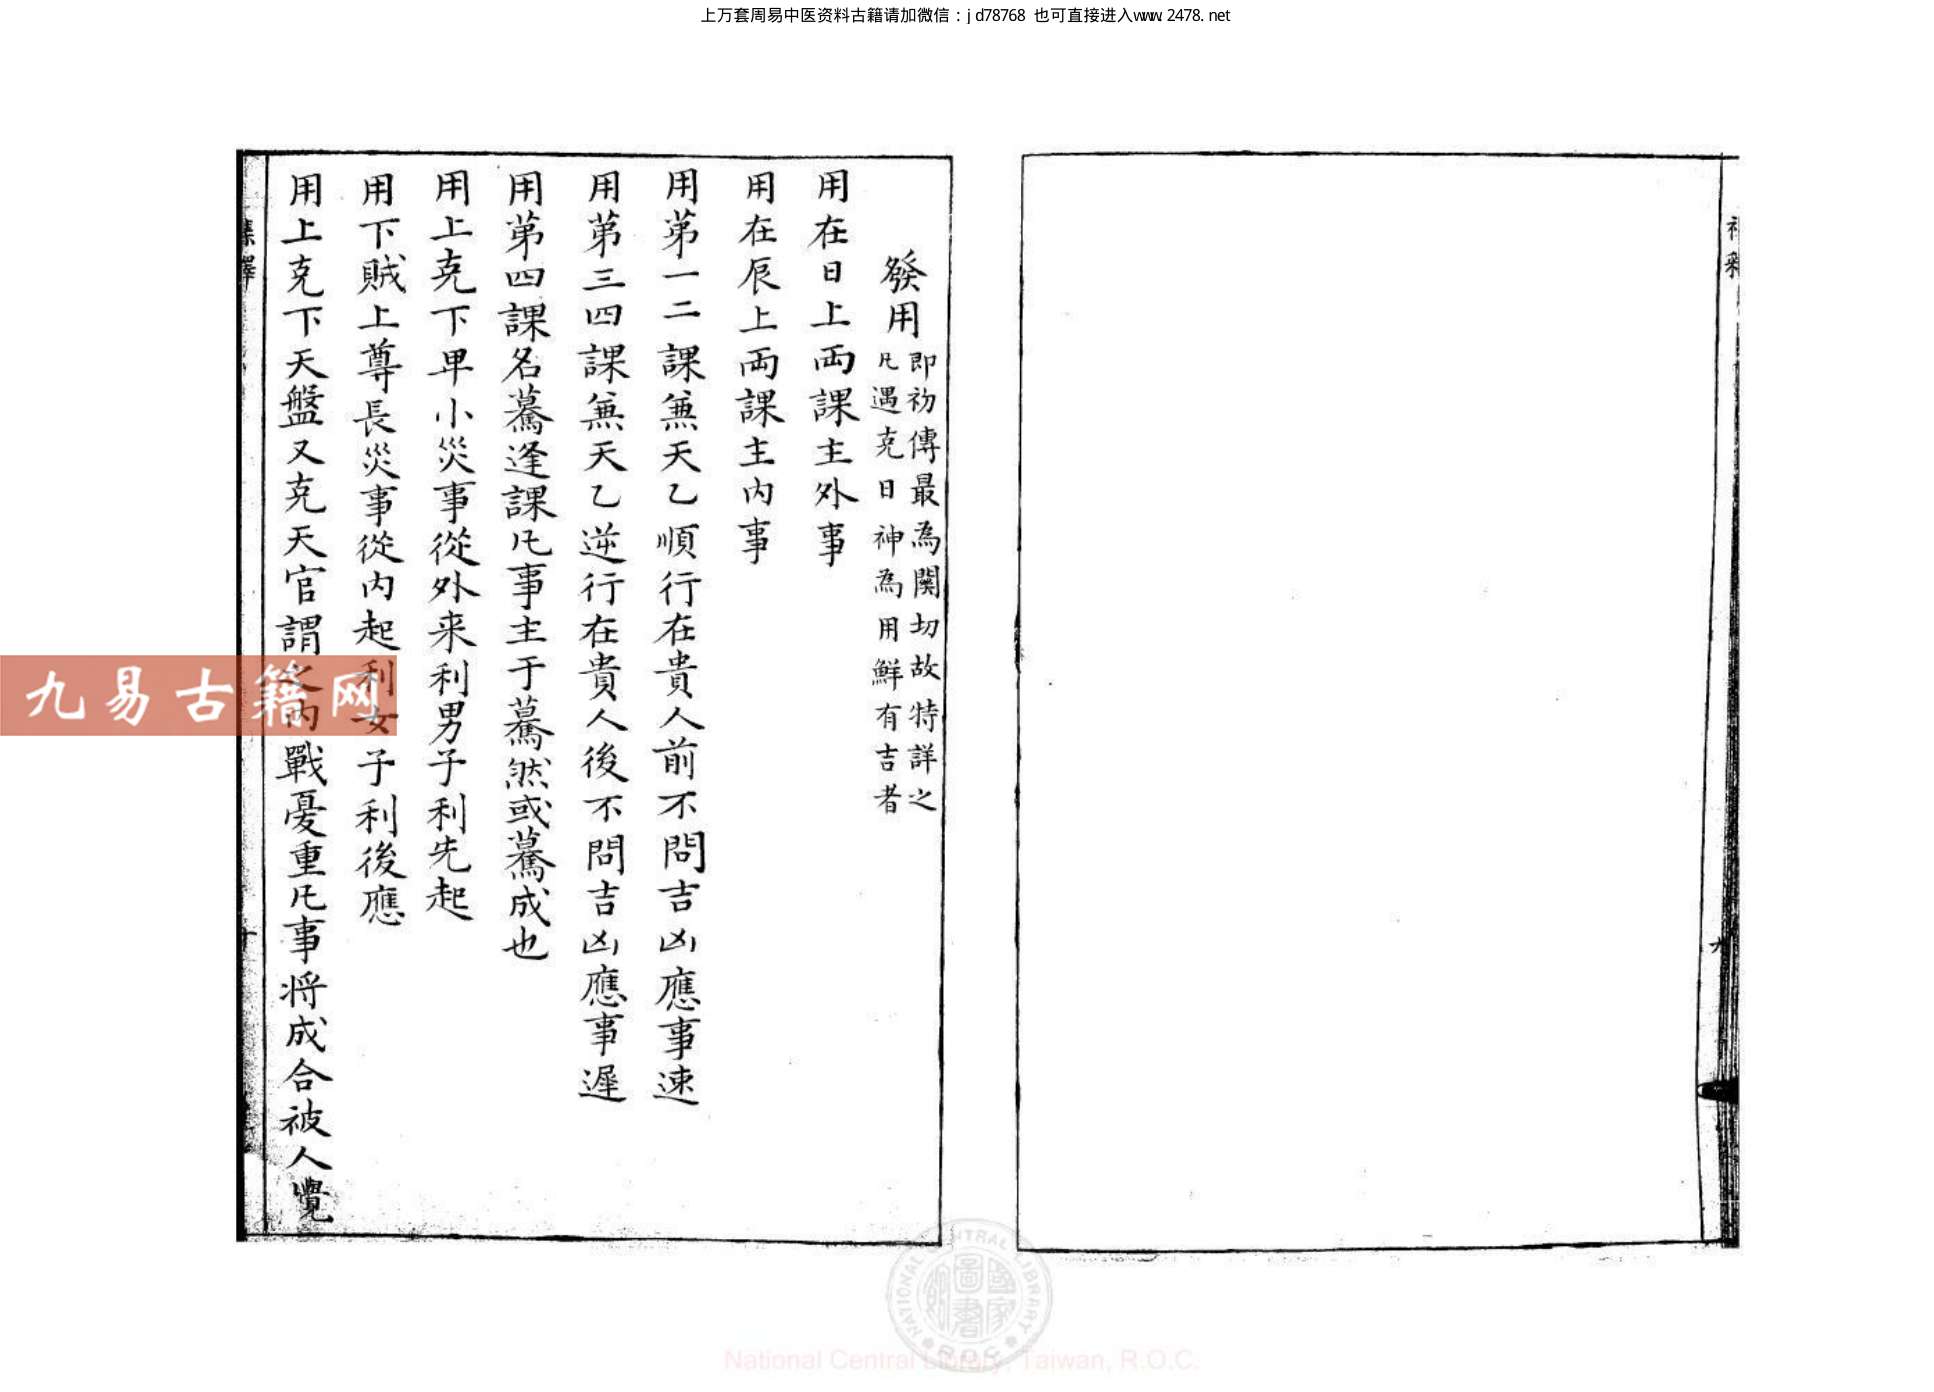 上万套周易中医资料古籍请加微信：jd78768 也可直接进入www.2478.net
發用
即初傳最為関切故特詳之
凡遇克日神為用鮮有吉者
用在日上両課主外事
用在辰上両課主内事
用苐一二課兼天乙順行在貴人前不問吉凶應事速
用苐三四課兼天乙逆行在貴人後不問吉凶應事遲
用苐四課名驀逢課凡事主于驀然或驀成也
用上克下卑小災事從外来利男子利先起
用下賊上尊長災事從内起利女子利後應
用上克下天盤又克天官謂之内戰憂重凡事将成合被人覺
九易古籍网
集釋
NATIONAL CENTRAL LIBRARY
國家圖書館
ROC
National Central Library, Taiwan, R.O.C.